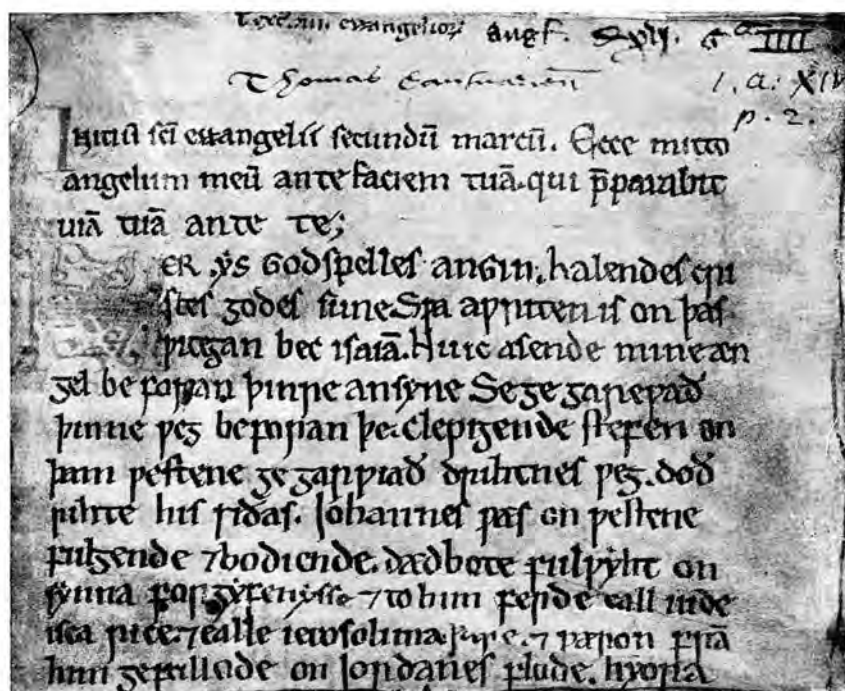 evangelior
Thomas Cantuarien̄ 1. A: XIV
p. 2.
Initiū sc̄i euangelii secundū marcū. Ecce mitto
angelum meū ante faciem tuā. qui p̄parabit
uiā tuā ante te;
ER ẏs GODspelles anGin. halendes cri
stes godes sune. Sƿa aƿriten is on þas
ƿitegan bec isaiā. Nu ic asende mine æn
gel be foran þinre ansyne Se ge gareƿað
þinne ƿeg beforan þe. Clepigende stefen on
þam ƿestene ge garƿiað drihtnes ƿeg. doð
rihte his siðas. Iohannes ƿas on ƿestene
fulgende ⁊ bodiende. dædbote fulƿẏht on
synna forgẏfenẏsse ⁊ to him ferde eall iude
isca rice. ⁊ ealle ierosolima ⁊ ƿæron frā
him gefullode on Iordanes flude. hyora